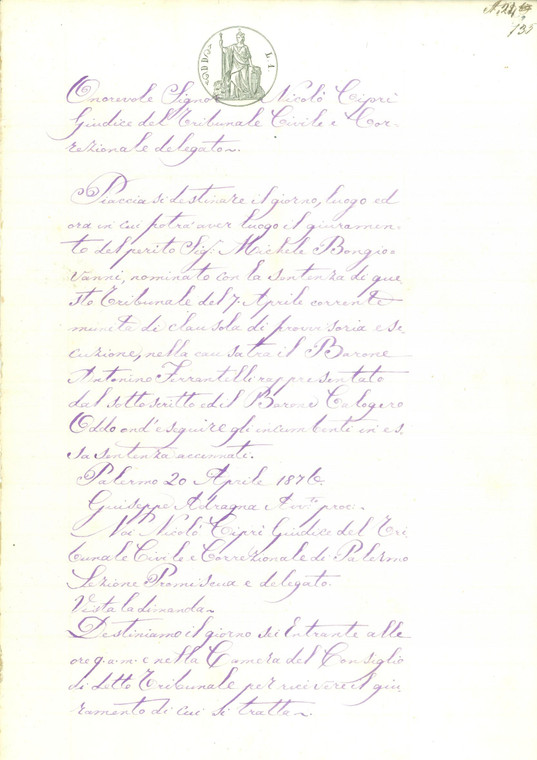 Onorevole Signor Nicolò Ciprì
Giudice del Tribunale Civile e Cor-
rezionale delegato.
Piaccia si destinare il giorno, luogo ed
ora in cui potrà aver luogo il giuramen-
to del perito Sig.r Michele Bongio-
vanni, nominato con la sentenza di que
sto Tribunale del 7 Aprile corrente
munita di clausola di provvisoria ese
cuzione, nella causa tra il Barone
Antonino Ferrantelli rappresentato
dal sottoscritto ed il Barone Calogero
Oddo ond'eseguire gli incumbenti in es
sa sentenza accennati.
Palermo 20 Aprile 1876.
Giuseppe Adragna Avv. proc.
Noi Nicolò Ciprì Giudice del Tri
bunale Civile e Correzionale di Palermo
Sezione Promiscua e delegato.
Vista la dimanda
Destiniamo il giorno sei Entrante alle
ore 9. a.m. e nella Camera del Consiglio
di detto Tribunale per ricivere il giu
ramento di cui si tratta.